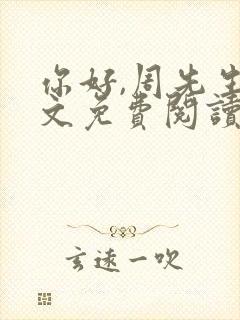 你好,周先生
文免費閱讀
玄遠一吹